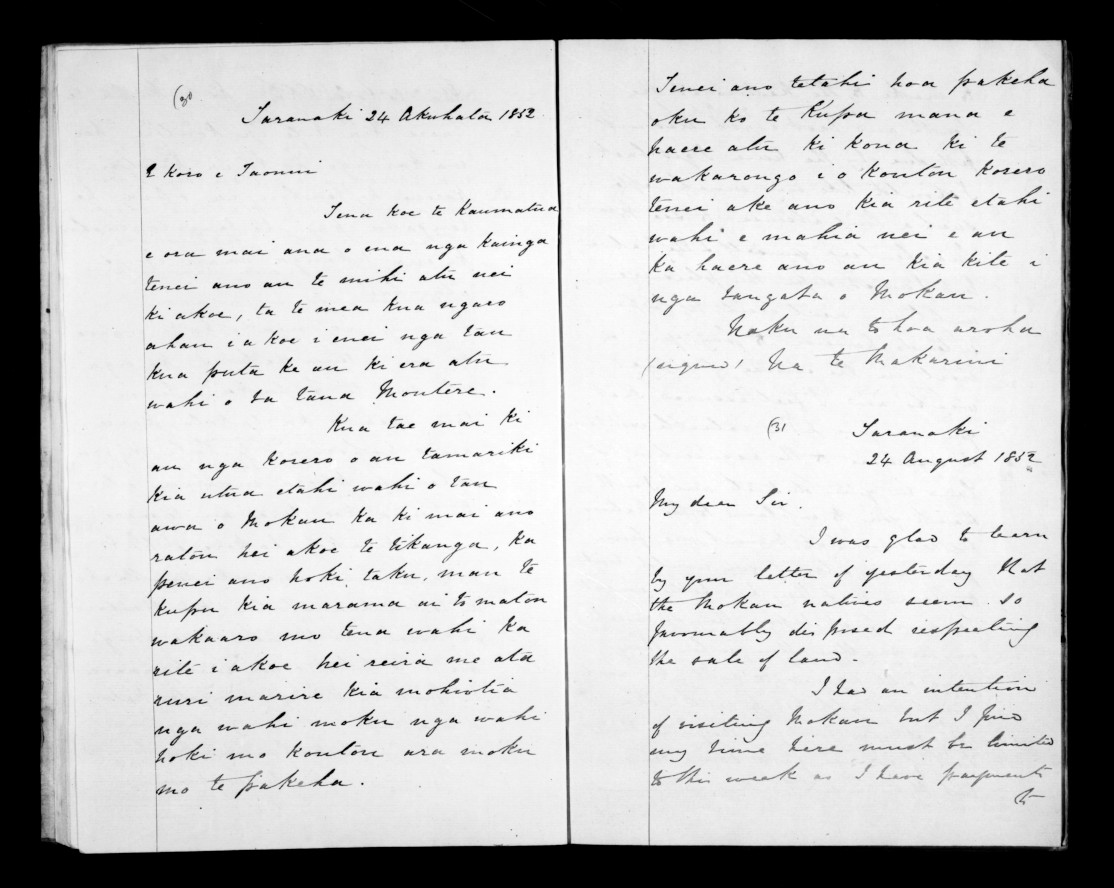 (30
Taranaki 24 Akuhata 1852
E koro e Taonui
Tena koe te kaumatua
e ora mai ana o ena nga kainga
tenei ano au te mihi atu nei
ki akoe, ta te mea kua ngaro
ahau i a koe i enei nga tau
kua puta ke au ki era atu
wahi o ta taua Moutere.
Kua tae mai ki
au nga korero o au tamariki
kia utua etahi wahi o tau
awa o Mokau ka ki mai ano
ratou hei akoe te tikanga, ka
penei ano hoki taku, mau te
kupu kia marama ai to matou
wakaaro mo tena wahi ka
rite i akoe hei reira me ata
ruri marire kia mohiotia
nga wahi moku nga wahi
hoki mo koutou ara moku
mo te pakeha.
Tenei ano tetahi hoa pakeha
oku ko te Kupa mana e
haere atu ki kona ki te
wakarongo i o koutou korero
tenei ake ano kia rite etahi
wahi e mahia nei e au
ka haere ano au kia kite i
nga tangata o Mokau.
Naku na to hoa aroha
(signed) Na te Makarini
(31
Taranaki
24 August 1852
My dear Sir.
I was glad to learn
by your letter of yesterday that
the Mokau natives seem so
favourably disposed respecting
the sale of land.
I had an intention
of visiting Mokau but I find
my time here must be limited
to this week as I have payments
to